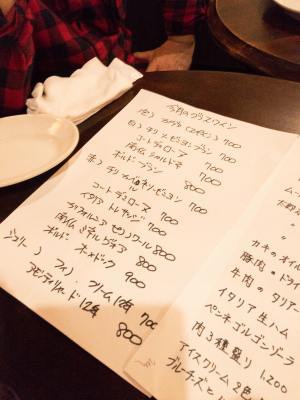 今月のグラスワイン
泡) カヴァ (スペイン) 700
白) チリ ソーヴィニヨン ブラン 700
コート デュ ローヌ 700
南仏 シャルドネ 700
ボルドー ブラン 800
赤) チリ カベルネ・ソーヴィニヨン 700
コート デュ ローヌ 700
イタリア 700
カリフォルニア ピノ ノワール 800
南仏 ミネルヴォア 800
ボルドー オーメドック 900
シェリー) フィノ クリーム 12年 700
アモンティリャード 12年 800
カキのオイ
豚肉のドライ
牛肉のタリアー
イタリア生ハム
ペンネゴルゴンゾーラ
肉3種盛り 1,200
アイスクリーム2色
ブルーチーズと